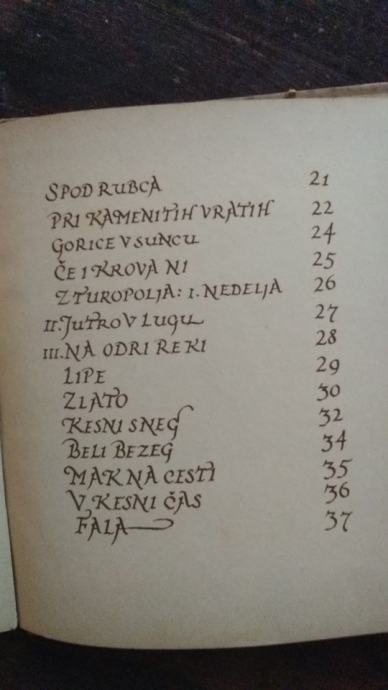 SPOD RUBCA 21
PRI KAMENITIH VRATIH 22
GORICE V SUNCU 24
ČE I KROVA NI 25
Z TUROPOLJA: I. NEDELJA 26
II. JUTRO V LUGU 27
III. NA ODRI REKI 28
LIPE 29
ZLATO 30
KESNI SNEG 32
BELI BEZEG 34
MAK NA CESTI 35
V KESNI ČAS 36
FALA 37